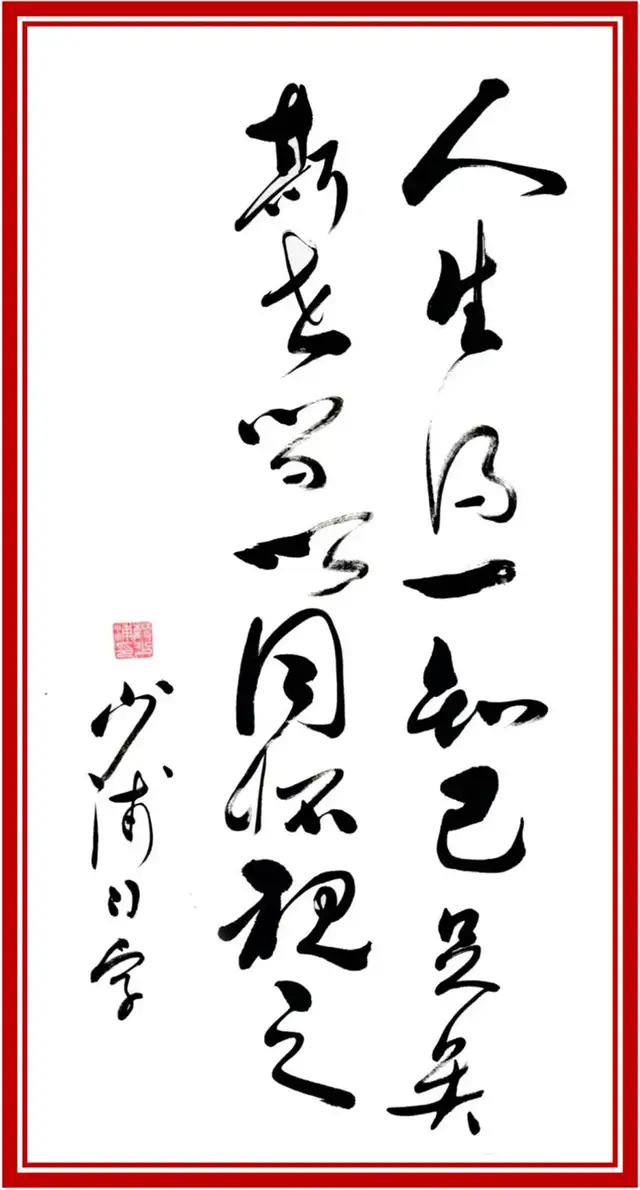 人生得一知己足矣
斯世当以同怀视之
少浦日字